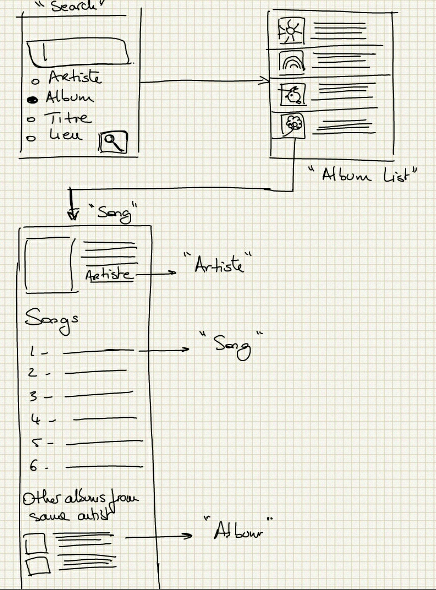 "Search"
Artiste
Album
Titre
Lieu
"Album List"
"Song"
Artiste
"Artiste"
Songs
1 -
"Song"
2 -
3 -
4 -
5 -
6 -
Other albums from
same artist
"Album"